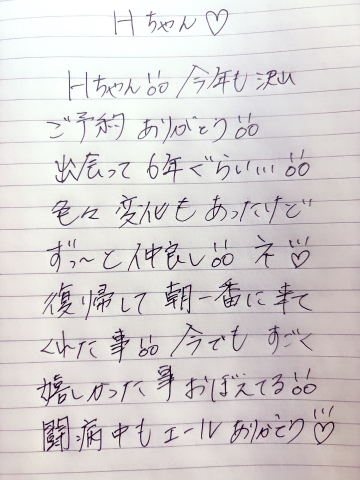 Hちゃん♡
Hちゃん!! 今年も沢山
ご予約ありがとう!!
出会って6年ぐらい…!!
色々変化もあったけど
ずっ〜と仲良し!! ネ!!♡
復帰して朝一番に来て
くれた事!! 今でもすごく
嬉しかった事おぼえてる!!
闘病中もエールありがとう!!♡